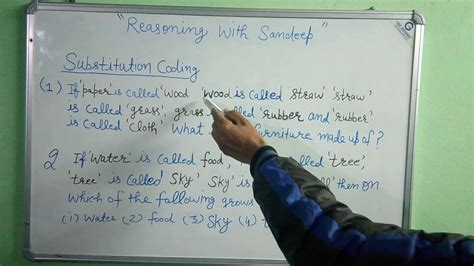 "Reasoning With Sandeep"
Substitution Coding
(1) If 'paper' is called 'wood 'wood is called straw' 'straw'
is called 'grass', grass called 'rubber and 'rubber'
is called 'cloth'. What furniture made up of?
2 If 'water' is called food, called 'tree',
'tree' is called 'sky' sky' is then on
which of the following grows
(1) water (2) food (3) sky (4)